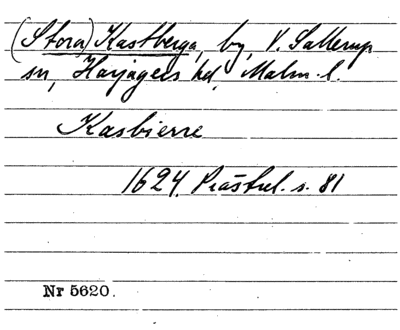 (Stora) Kastberga, by, V. Sallerup
sn, Harjagers hd, Malm. l.
Kasbierre
1624. Prästrel. s. 81
Nr 5620.